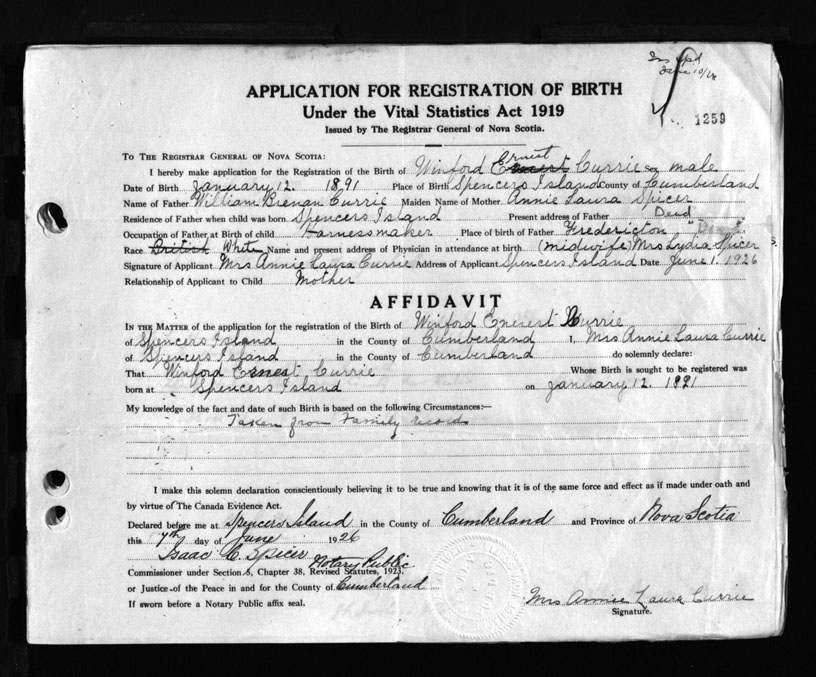 APPLICATION FOR REGISTRATION OF BIRTH
Under the Vital Statistics Act 1919
Issued by The Registrar General of Nova Scotia.
1259
TO THE REGISTRAR GENERAL OF NOVA SCOTIA:
Ernest
I hereby make application for the Registration of the Birth of Winford Currie Sex male
Date of Birth January 12. 1891 Place of Birth Spencers Island County of Cumberland
Name of Father William Brenan Currie Maiden Name of Mother Annie Laura Spicer
Residence of Father when child was born Spencers Island Present address of Father Deed
Occupation of Father at Birth of child Harnessmaker Place of birth of Father Fredericton
Race British White Name and present address of Physician in attendance at birth (midwife) Mrs Lydia Spicer
Signature of Applicant Mrs Annie Laura Currie Address of Applicant Spencers Island Date June 1. 1926
Relationship of Applicant to Child Mother
AFFIDAVIT
IN THE MATTER of the application for the registration of the Birth of Winford Enerest Currie
of Spencers Island in the County of Cumberland I, Mrs Annie Laura Currie
of Spencers Island in the County of Cumberland do solemnly declare:
That Winford Ernest Currie Whose Birth is sought to be registered was
born at Spencers Island on January 12. 1891
My knowledge of the fact and date of such Birth is based on the following Circumstances:—
Taken from Family records
I make this solemn declaration conscientiously believing it to be true and knowing that it is of the same force and effect as if made under oath and
by virtue of The Canada Evidence Act.
Declared before me at Spencers Island in the County of Cumberland and Province of Nova Scotia
this 7th day of June 1926
Isaac C. Spicer Notary Public
Commissioner under Section 8, Chapter 38, Revised Statutes, 1923.
or Justice of the Peace in and for the County of Cumberland
If sworn before a Notary Public affix seal.
Mrs Annie Laura Currie
Signature.